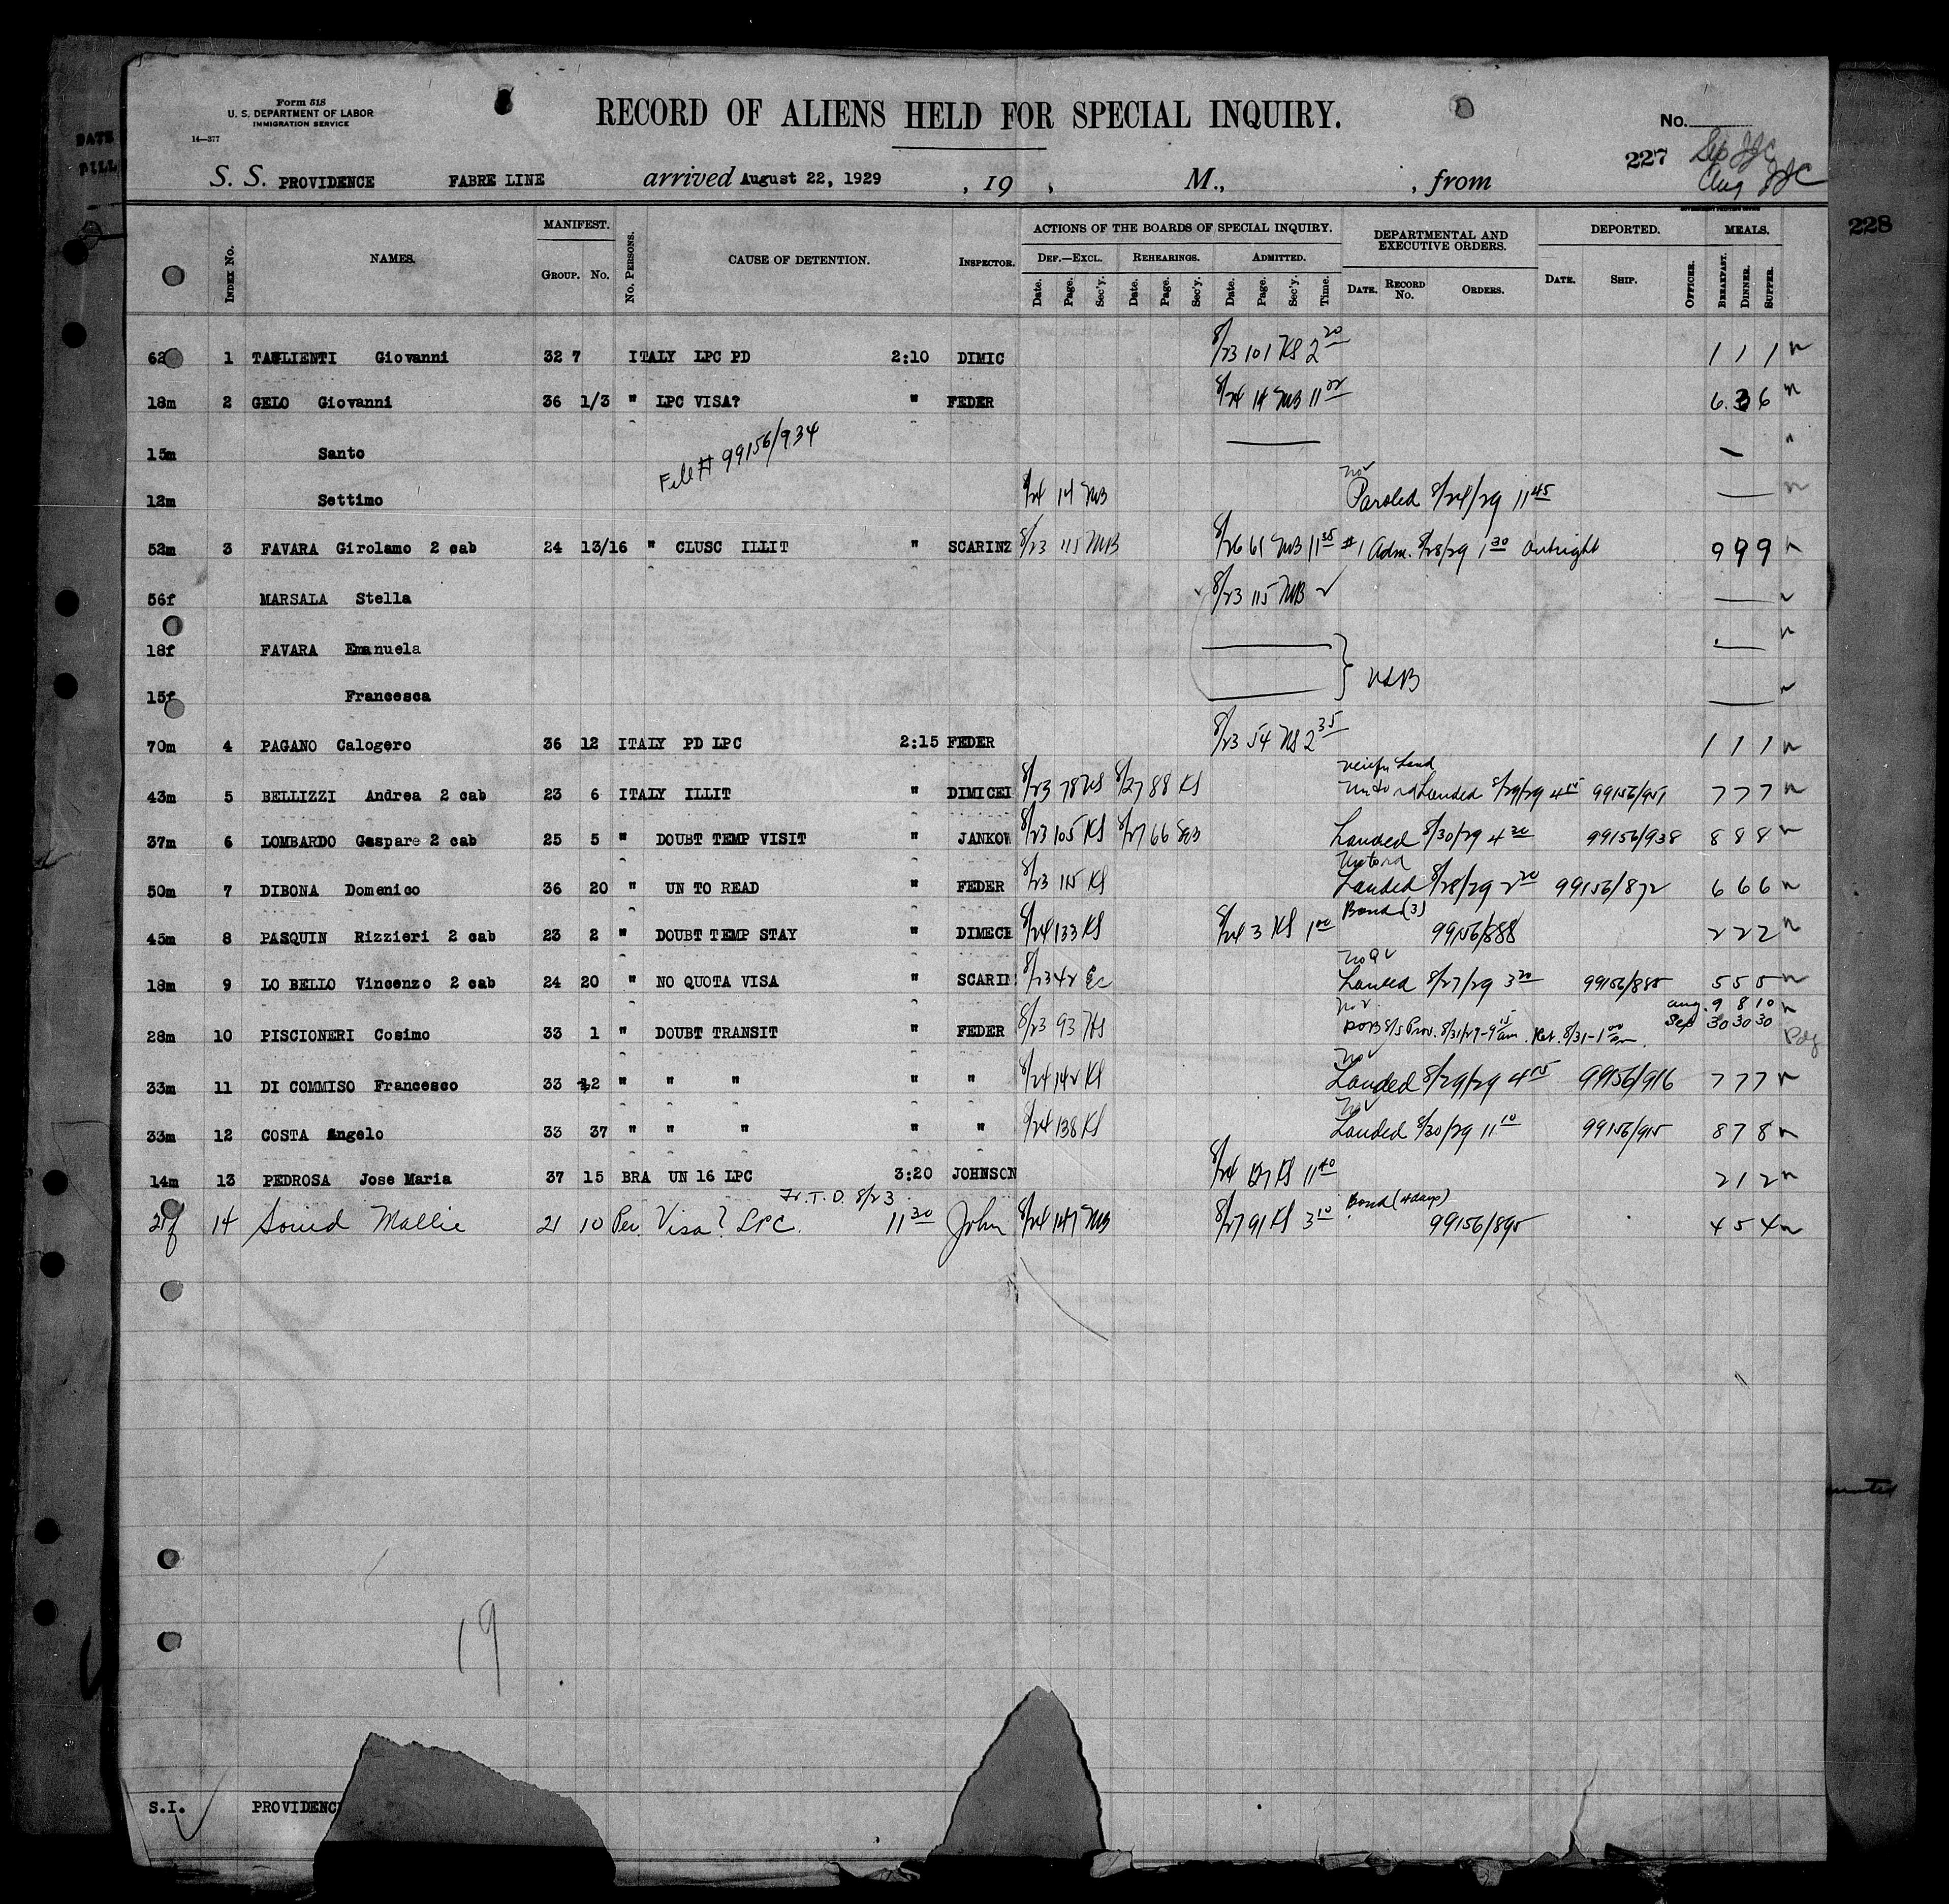 Form 518
U. S. DEPARTMENT OF LABOR
IMMIGRATION SERVICE
14—377
RECORD OF ALIENS HELD FOR SPECIAL INQUIRY.
No.
227
Aug
S. S. PROVIDENCE FABRE LINE arrived August 22, 1929 , 19 , M., , from
228
MANIFEST. ACTIONS OF THE BOARDS OF SPECIAL INQUIRY. DEPARTMENTAL AND EXECUTIVE ORDERS. DEPORTED. MEALS.
Index No. NAMES. Group. No. No. Persons. CAUSE OF DETENTION. Inspector. Def.—Excl. Rehearings. Admitted.
Date. Page. Sec'y. Date. Page. Sec'y. Date. Page. Sec'y. Time. Date. Record No. Orders. Date. Ship. Officer. Breakfast. Dinner. Supper.
1 TAGLIENTI Giovanni 32 7 ITALY LPC PD 2:10 DIMIC 8/23 101 KS 2 20 1 1 1
18m 2 GELO Giovanni 36 1/3 " LPC VISA? " FEDER 8/24 14 MB 11 6 3 6
15m Santo
File # 99156/934
12m Settimo 8/24 14 MB Paroled 8/24/29 11 45
52m 3 FAVARA Girolamo 2 cab 24 13/16 " CLUSC ILLIT " SCARINZ 8/23 115 MB 8/26 61 MB 11 35 #1 Adm. 8/28/29 1 30 outright 9 9 9
56f MARSALA Stella 8/23 115 MB
18f FAVARA Emanuela
15f Francesca
70m 4 PAGANO Calogero 36 12 ITALY PD LPC 2:15 FEDER 8/23 54 2 35 1 1 1
43m 5 BELLIZZI Andrea 2 cab 23 6 ITALY ILLIT " DIMICEI 8/23 78 8/27 88 KS Landed 8/29/29 7 7 7
37m 6 LOMBARDO Gaspare 2 cab 25 5 " DOUBT TEMP VISIT " JANKOW 8/23 105 KS 8/27 66 Landed 8/30/29 4 30 99156/938 8 8 8
50m 7 DIBONA Domenico 36 20 " UN TO READ " FEDER 8/23 115 KS Landed 8/28/29 2 20 99156/872 6 6 6
Bond (3)
45m 8 PASQUIN Rizzieri 2 cab 23 2 " DOUBT TEMP STAY " DIMECE 8/24 133 KS 8/24 3 KS 1 00 99156/888 2 2 2
18m 9 LO BELLO Vincenzo 2 cab 24 20 " NO QUOTA VISA " SCARIN 8/23 42 Landed 8/27/29 3 20 99156/885 5 5 5
Aug. 9 8 10
Sep 30 30 30
28m 10 PISCIONERI Cosimo 33 1 " DOUBT TRANSIT " FEDER 8/23 93 KS S/S Prov. 8/31/29 - 9 15 am. Ret. 8/31 - 1 00
33m 11 DI COMMISO Francesco 33 " " " " 8/24 142 KS Landed 8/29/29 4 15 99156/916 7 7 7
33m 12 COSTA Angelo 33 37 " " " " 8/24 138 KS Landed 8/30/29 11 10 99156/915 8 7 8
14m 13 PEDROSA Jose Maria 37 15 BRA UN 16 LPC 3:20 JOHNSON 8/24 127 KS 11 40 2 1 2
Fr. T. D. 8/23 Bond (4 days)
21f 14 Souid Mallie 21 10 Per. Visa? LPC. 11 30 John 8/24 147 MB 8/27 91 KS 3 10 99156/895 4 5 4
19
S.I. PROVIDENC